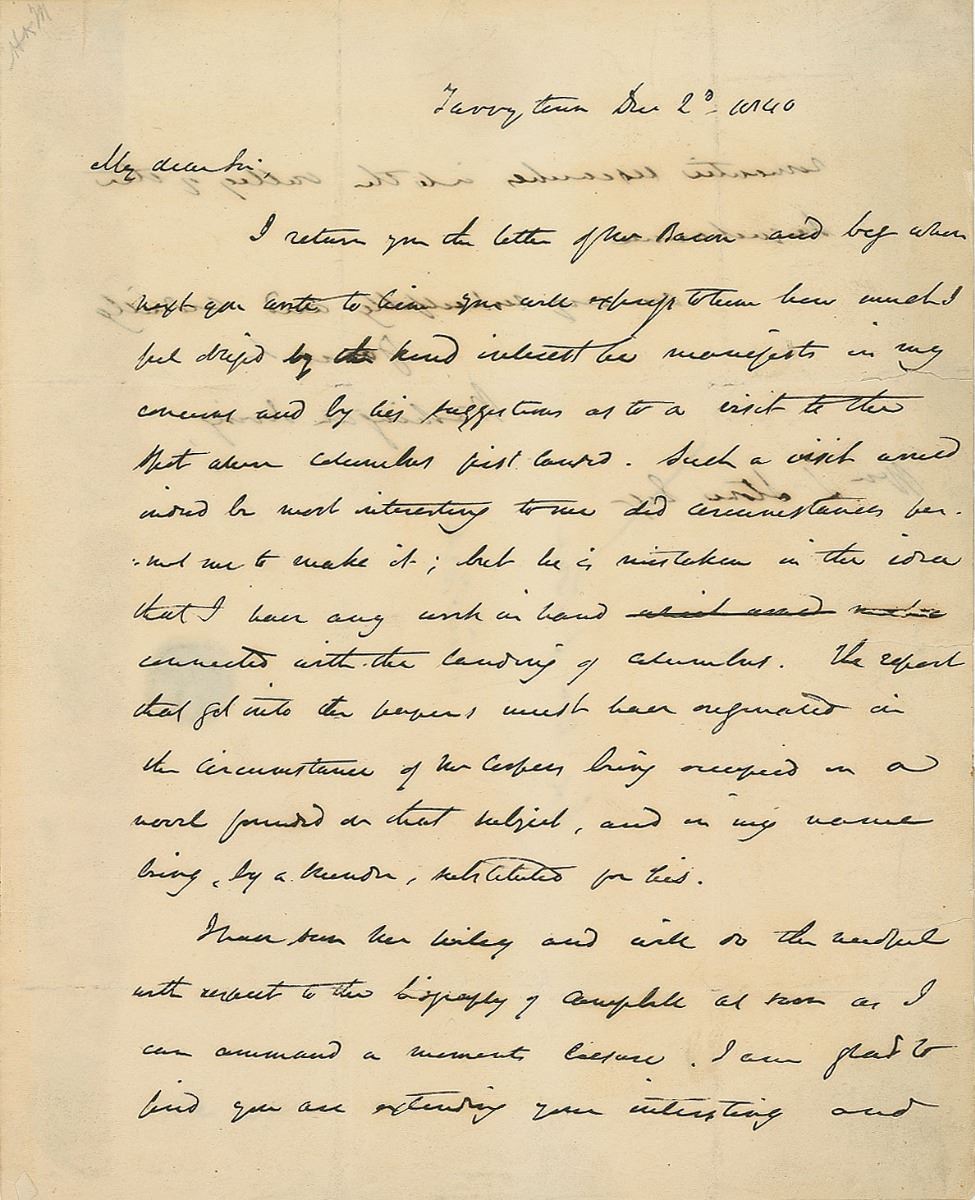 H & M
Tarrytown Dec 2ᵈ 1840
My dear Sir
I return you the letter of Mr Bacon and beg when
next you write to him you will express to him how much I
feel obliged by the kind interest he manifests in my
concerns and by his suggestions as to a visit to the
spot where Columbus first landed. Such a visit would
indeed be most interesting to me did circumstances per-
-mit me to make it; but he is mistaken in the idea
that I have any work in hand which would
connected with the landing of Columbus. The report
that got into the papers must have originated in
the circumstance of Mr Cooper being occupied on a
novel founded on that subject, and in my name
being, by a blunder, substituted for his.
I have seen Mr Wiley and will do the needful
with respect to the biography of Campbell as soon as I
can command a moments leisure. I am glad to
find you are extending your interesting and